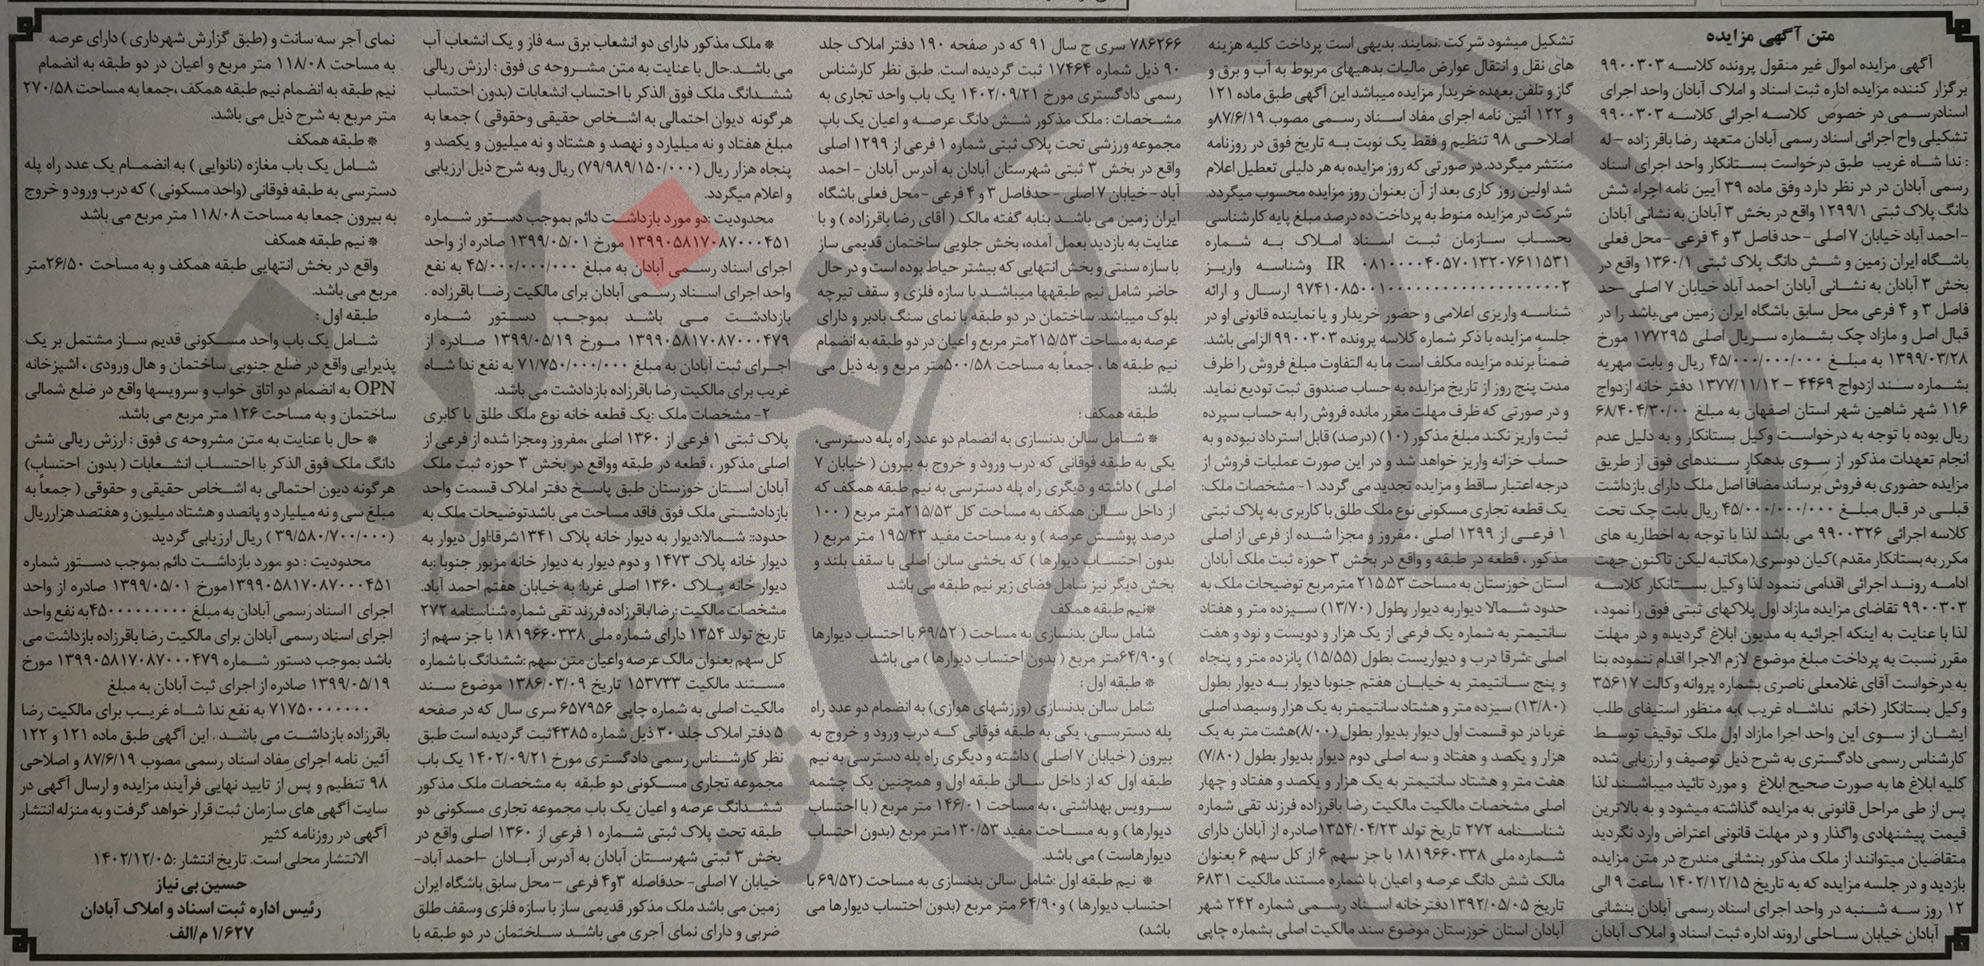 متن آگهی مزایده
آگهی مزایده اموال غیر منقول پرونده کلاسه ۹۹۰۰۳۰۳
برگزار کننده مزایده اداره ثبت اسناد و املاک آبادان واحد اجرای
اسنادرسمی در خصوص کلاسه اجرائی کلاسه ۹۹۰۰۳۰۳
تشکیلی واح اجرائی اسناد رسمی آبادان متعهد رضا باقر زاده – له
: ندا شاه غریب طبق درخواست بستانکار واحد اجرای اسناد
رسمی آبادان در در نظر دارد وفق ماده ۳۹ آیین نامه اجراء شش
دانگ پلاک ثبتی ۱۲۹۹/۱ واقع در بخش ۳ آبادان به نشانی آبادان
–احمد آباد خیابان ۷ اصلی –حد فاصل ۳ و ۴ فرعی –محل فعلی
باشگاه ایران زمین و شش دانگ پلاک ثبتی ۱۳۶۰/۱ واقع در
بخش ۳ آبادان به نشانی آبادان احمد آباد خیابان ۷ اصلی –حد
فاصل ۳ و ۴ فرعی محل سابق باشگاه ایران زمین می.باشد را در
قبال اصل و مازاد چک بشماره سریال اصلی ۱۷۷۲۹۵ مورخ
۱۳۹۹/۰۳/۲۸ به مبلغ ۴۵/۰۰۰/۰۰۰/۰۰۰ ریال و بابت مهریه
بشماره سند ازدواج ۴۴۶۹ – ۱۳۷۷/۱۱/۱۲ دفتر خانه ازدواج
۱۱۶ شهر شاهین شهر استان اصفهان به مبلغ ۶۸/۴۰۴/۳۰/۰۰
ریال بوده با توجه به درخواست وکیل بستانکار و به دلیل عدم
انجام تعهدات مذکور از سوی بدهکار سندهای فوق از طریق
مزایده حضوری به فروش برساند مضافا اصل ملک دارای بازداشت
قبلی در قبال مبلغ ۴۵/۰۰۰/۰۰۰/۰۰۰ ریال بابت چک تحت
کلاسه اجرائی ۹۹۰۰۳۲۶ می باشد لذا با توجه به اخطاریه های
مکرر به بستانکار مقدم )کیان دوسری( مکاتبه لیکن تاکنون جهت
ادامه روند اجرائی اقدامی ننمود لذا وکیل بستانکار کلاسه
۹۹۰۰۳۰۳ تقاضای مزایده مازاد اول پلاکهای ثبتی فوق را نمود ،
لذا با عنایت به اینکه اجرائیه به مدیون ابلاغ گردیده و در مهلت
مقرر نسبت به پرداخت مبلغ موضوع لازم الاجرا اقدام ننموده بنا
به درخواست آقای غلامعلی ناصری بشماره پروانه وکالت ۳۵۶۱۷
وکیل بستانکار (خانم نداشاه غریب )به منظور استیفای طلب
ایشان از سوی این واحد اجرا مازاد اول ملک توقیف توسط
کارشناس رسمی دادگستری به شرح ذیل توصیف و ارزیابی شده
کلیه ابلاغ ها به صورت صحیح ابلاغ و مورد تائید میباشند لذا
پس از طی مراحل قانونی به مزایده گذاشته میشود و به بالاترین
قیمت پیشنهادی واگذار و در مهلت قانونی اعتراض وارد نگردید
متقاضیان میتوانند از ملک مذکور بنشانی مندرج در متن مزایده
بازدید و در جلسه مزایده که به تاریخ ۱۴۰۲/۱۲/۱۵ ساعت ۹ الی
۱۲ روز سه شنبه در واحد اجرای اسناد رسمی آبادان بنشانی
آبادان خیابان ساحلی اروند اداره ثبت اسناد و املاک آبادان
تشکیل میشود شرکت .نمایند. بدیهی است پرداخت کلیه هزینه
های نقل و انتقال عوارض مالیات بدهیهای مربوط به آب و برق و
گاز و تلفن بعهده خریدار مزایده میباشد این آگهی طبق ماده ۱۲۱
و ۱۲۲ آئین نامه اجرای مفاد اسناد رسمی مصوب ۸۷/۶/۱۹و
اصلاحی ۹۸ تنظیم و فقط یک نوبت به تاریخ فوق در روزنامه
منتشر میگردد.در صورتی که روز مزایده به هر دلیلی تعطیل اعلام
شد اولین روز کاری بعد از آن بعنوان روز مزایده محسوب میگردد.
شرکت در مزایده منوط به پرداخت ده درصد مبلغ پایه کارشناسی
بحساب سازمان ثبت اسناد املاک به شماره
IR ۰۸۱۰۰۰۰۴۰۵۷۰۱۳۲۰۷۶۱۱۵۳۱ وشناسه واریز
ارسال و ارائه
شناسه واریزی اعلامی و حضور خریدار و یا نماینده قانونی او در
جلسه مزایده با ذکر شماره کلاسه پرونده ۹۹۰۰۳۰۳ الزامی باشد.
ضمناً برنده مزایده مکلف است ما به التفاوت مبلغ فروش را ظرف
مدت پنج روز از تاریخ مزایده به حساب صندوق ثبت تودیع نماید.
و در صورتی که ظرف مهلت مقرر مانده فروش را به حساب سپرده
ثبت واریز نکند مبلغ مذکور (۱۰) (درصد) قابل استرداد نبوده و به
حساب خزانه واریز خواهد شد و در این صورت عملیات فروش از
درجه اعتبار ساقط و مزایده تجدید می گردد. ۱– مشخصات ملک:
یک قطعه تجاری مسکونی نوع ملک طلق با کاربری به پلاک ثبتی
۱ فرعی از ۱۲۹۹ اصلی ، مفروز و مجزا شده از فرعی از اصلی
مذکور ، قطعه در طبقه و واقع در بخش ۳ حوزه ثبت ملک آبادان
استان خوزستان به مساحت ۲۱۵.۵۳ مترمربع توضیحات ملک به
حدود شمالا دیواربه دیوار بطول (۱۳/۷۰) سیزده متر و هفتاد
سانتیمتر به شماره یک فرعی از یک هزار و دویست و نود و هفت
اصلی :شرقا درب و دیواریست بطول (۱۵/۵۵) پانزده متر و پنجاه
و پنج سانتیمتر به خیابان هفتم جنوبا دیوار به دیوار بطول
(۱۳/۸۰) سیزده متر و هشتاد سانتیمتر به یک هزار وسیصد اصلی
غربا در دو قسمت اول دیوار بدیوار بطول (۸/۰۰)هشت متر به یک
هزار و یکصد و هفتاد و سه اصلی دوم دیوار بدیوار بطول (۷/۸۰)
هفت متر و هشتاد سانتیمتر به یک هزار و یکصد و هفتاد و چهار
اصلی مشخصات مالکیت مالکیت رضا باقرزاده فرزند تقی شماره
شناسنامه ۲۷۲ تاریخ تولد ۱۳۵۴/۰۴/۲۳صادره از آبادان دارای
شماره ملی ۱۸۱۹۶۶۰۳۳۸ با جز سهم ۶ از کل سهم ۶ بعنوان
مالک شش دانگ عرصه و اعیان با شماره مستند مالکیت ۶۸۳۱
تاریخ ۱۳۹۲/۰۵/۰۵دفترخانه اسناد رسمی شماره ۲۴۲ شهر
آبادان استان خوزستان موضوع سند مالکیت اصلی بشماره چاپی
۷۸۶۲۶۶ سری ج سال ۹۱ که در صفحه ۱۹۰ دفتر املاک جلد
۹۰ ذیل شماره ۱۷۴۶۴ ثبت گردیده است. طبق نظر کارشناس
رسمی دادگستری مورخ ۱۴۰۲/۰۹/۲۱ یک باب واحد تجاری به
مشخصات : ملک مذکور شش دانگ عرصه و اعیان یک باب
مجموعه ورزشی تحت پلاک ثبتی شماره ۱ فرعی از ۱۲۹۹ اصلی
واقع در بخش ۳ ثبتی شهرستان آبادان به آدرس آبادان – احمد
آباد – خیابان ۷ اصلی – حدفاصل ۳ و ۴ فرعی – محل فعلی باشگاه
ایران زمین می باشد بنابه گفته مالک ( آقای رضا باقرزاده ) و با
عنایت به بازدید بعمل آمده، بخش جلویی ساختمان قدیمی ساز
با سازه سنتی و بخش انتهایی که بیشتر حیاط بوده است و در حال
حاضر شامل نیم طبقهها میباشد با سازه فلزی و سقف تیرچه
بلوک میباشد. ساختمان در دو طبقه با نمای سنگ بادبر و دارای
عرصه به مساحت ۲۱۵/۵۳متر مربع و اعیان در دو طبقه به انضمام
نیم طبقه ها ، جمعاً به مساحت ۵۰۰/۵۸متر مربع و به ذیل می
باشد:
طبقه همکف :
* شامل سالن بدنسازی به انضمام دو عدد راه پله دسترسی،
یکی به طبقه فوقانی که درب ورود و خروج به بیرون ( خیابان ۷
اصلی ) داشته و دیگری راه پله دسترسی به نیم طبقه همکف که
از داخل سالن همکف به مساحت کل ۲۱۵/۵۳متر مربع ( ۱۰۰
درصد پوشش عرصه ) و به مساحت مفید ۱۹۵/۴۳ متر مربع (
بدون احتساب دیوارها ) که بخشی سالن اصلی با سقف بلند و
بخش دیگر نیز شامل فضای زیر نیم طبقه می باشد
*نیم طبقه همکف
شامل سالن بدنسازی به مساحت ( ۶۹/۵۲ با احتساب دیوارها
) و۶۴/۹۰متر مربع ( بدون احتساب دیوارها ) می باشد
* طبقه اول :
شامل سالن بدنسازی (ورزشهای هوازی) به انضمام دو عدد راه
پله دسترسی، یکی به طبقه فوقانی که درب ورود و خروج به
بیرون ( خیابان ۷ اصلی ) داشته و دیگری راه پله دسترسی به نیم
طبقه اول که از داخل سالن طبقه اول و همچنین یک چشمه
سرویس بهداشتی ، به مساحت ۱۴۶/۰۱ متر مربع ( با احتساب
دیوارها ) و به مساحت مفید ۱۳۰/۵۳متر مربع (بدون احتساب
دیوارهاست ) می باشد.
* نیم طبقه اول :شامل سالن بدنسازی به مساحت (۶۹/۵۲ با
احتساب دیوارها ) و۶۴/۹۰ متر مربع (بدون احتساب دیوارها می
باشد)
* ملک مذکور دارای دو انشعاب برق سه فاز و یک انشعاب آب
می باشد.حال با عنایت به متن مشروحه ی فوق : ارزش ریالی
ششدانگ ملک فوق الذکر با احتساب انشعابات (بدون احتساب
هرگونه دیوان احتمالی به اشخاص حقیقی وحقوقی ) جمعا به
مبلغ هفتاد و نه میلیارد و نهصد و هشتاد و نه میلیون و یکصد و
پنجاه هزار ریال (۷۹/۹۸۹/۱۵۰/۰۰۰) ریال وبه شرح ذیل ارزیابی
و اعلام میگردد.
محدودیت :دو مورد بازداشت دائم بموجب دستور شماره
۱۳۹۹۰۵۸۱۷۰۸۷۰۰۰۴۵۱ مورخ ۱۳۹۹/۰۵/۰۱ صادره از واحد
اجرای اسناد رسمی آبادان به مبلغ ۴۵/۰۰۰/۰۰۰/۰۰۰ به نفع
واحد اجرای اسناد رسمی آبادان برای مالکیت رضا باقرزاده .
بازدادشت می باشد بموجب دستور شماره
۱۳۹۹۰۵۸۱۷۰۸۷۰۰۰۴۷۹ مورخ ۱۳۹۹/۰۵/۱۹ صادره از
اجرای ثبت آبادان به مبلغ ۷۱/۷۵۰/۰۰۰/۰۰۰ به نفع ندا شاه
غریب برای مالکیت رضا باقرزاده بازدادشت می باشد.
۲– مشخصات ملک :یک قطعه خانه نوع ملک طلق با کابری
پلاک ثبتی ۱ فرعی از ۱۳۶۰ اصلی ،مفروز ومجزا شده از فرعی از
اصلی مذکور ، قطعه در طبقه وواقع در بخش ۳ حوزه ثبت ملک
آبادان استان خوزستان طبق پاسخ دفتر املاک قسمت واحد
بازدادشتی ملک فوق فاقد مساحت می باشدتوضیحات ملک به
حدود: شمالا:دیوار به دیوار خانه پلاک ۱۳۴۱شرقا:اول دیوار به
دیوار خانه پلاک ۱۴۷۳ و دوم دیوار به دیوار خانه مزبور جنوبا :به
دیوار خانه پلاک ۱۳۶۰ اصلی غربا: به خیابان هفتم احمد آباد.
مشخصات مالکیت :رضا/باقرزاده فرزند تقی شماره شناسنامه ۲۷۲
تاریخ تولد ۱۳۵۴ دارای شماره ملی ۱۸۱۹۶۶۰۳۳۸ با جز سهم از
کل سهم بعنوان مالک عرصه واعیان متن سهم :ششدانگ با شماره
مستند مالکیت ۱۵۳۷۳۳ تاریخ ۱۳۸۶/۰۳/۰۹ موضوع سند
مالکیت اصلی به شماره چاپی ۶۵۷۹۵۶ سری سال که در صفحه
۵ دفتر املاک جلد ۳۰ ذیل شماره ۴۳۸۵ثبت گردیده است طبق
نظر کارشناس رسمی دادگستری مورخ ۱۴۰۲/۰۹/۲۱ یک باب
مجموعه تجاری مسکونی دو طبقه به مشخصات ملک مذکور
ششدانگ عرصه و اعیان یک باب مجموعه تجاری مسکونی دو
طبقه تحت پلاک ثبتی شماره ۱ فرعی از ۱۳۶۰ اصلی واقع در
بخش ۳ ثبتی شهرستان آبادان به آدرس آبادان –احمد آباد–
خیابان ۷ اصلی– حدفاصله ۳و۴ فرعی – محل سابق باشگاه ایران
زمین می باشد ملک مذکور قدیمی ساز با سازه فلزی وسقف طلق
ضربی و دارای نمای آجری می باشد ساختمان در دو طبقه با
نمای آجر سه سانت و (طبق گزارش شهرداری ) دارای عرصه
به مساحت ۱۱۸/۰۸ متر مربع و اعیان در دو طبقه به انضمام
نیم طبقه به انضمام نیم طبقه همکف ،جمعا به مساحت ۲۷۰/۵۸
متر مربع به شرح ذیل می باشد.
* طبقه همکف
شامل یک باب مغازه (نانوایی ) به انضمام یک عدد راه پله
دسترسی به طبقه فوقانی (واحد مسکونی ) که درب ورود و خروج
به بیرون جمعا به مساحت ۱۱۸/۰۸ متر مربع می باشد
* نیم طبقه همکف
واقع در بخش انتهایی طبقه همکف و به مساحت ۲۶/۵۰متر
مربع می باشد.
طبقه اول :
شامل یک باب واحد مسکونی قدیم ساز مشتمل بر یک
پذیرایی واقع در ضلع جنوبی ساختمان و هال ورودی ، اشپزخانه
OPN به انضمام دو اتاق خواب و سرویسها واقع در ضلع شمالی
ساختمان و به مساحت ۱۲۶ متر مربع می باشد.
* حال با عنایت به متن مشروحه ی فوق : ارزش ریالی شش
دانگ ملک فوق الذکر با احتساب انشعابات ( بدون احتساب)
هرگونه دیون احتمالی به اشخاص حقیقی و حقوقی ( جمعاً به
مبلغ سی و نه میلیارد و پانصد و هشتاد میلیون و هفتصد هزارریال
(۳۹/۵۸۰/۷۰۰/۰۰۰ ) ریال ارزیابی گردید
محدودیت : دو مورد بازداشت دائم بموجب دستور شماره
۱۳۹۹۰۵۸۱۷۰۸۷۰۰۰۴۵۱مورخ ۱۳۹۹/۰۵/۰۱ صادره از واحد
اجرای ااسناد رسمی آبادان به مبلغ ۴۵۰۰۰۰۰۰۰۰۰به نفع واحد
اجرای اسناد رسمی آبادان برای مالکیت رضا باقرزاده بازداشت می
باشد بموجب دستور شماره ۱۳۹۹۰۵۸۱۷۰۸۷۰۰۰۴۷۹ مورخ
۱۳۹۹/۰۵/۱۹ صادره از اجرای ثبت آبادان به مبلغ
۷۱۷۵۰۰۰۰۰۰۰ به نفع ندا شاه غریب برای مالکیت رضا
باقرزاده بازداشت می باشد . این آگهی طبق ماده ۱۲۱ و ۱۲۲
آئین نامه اجرای مفاد اسناد رسمی مصوب ۸۷/۶/۱۹ و اصلاحی
۹۸ تنظیم و پس از تایید نهایی فرآیند مزایده و ارسال آگهی در
سایت آگهی های سازمان ثبت قرار خواهد گرفت و به منزله انتشار
آگهی در روزنامه کثیر
الانتشار محلی است. تاریخ انتشار :۱۴۰۲/۱۲/۰۵
حسین بی نیاز
رئیس اداره ثبت اسناد و املاک آبادان
۱/۶۲۷ م/الف